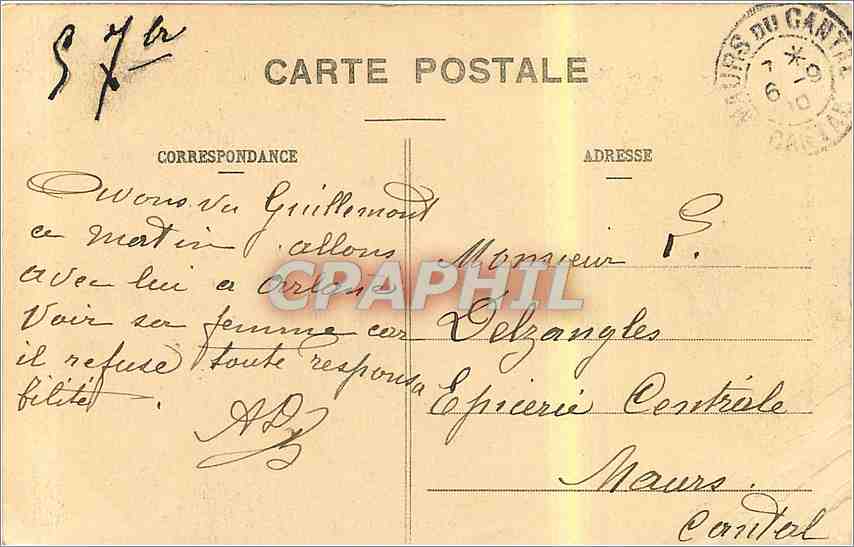 5 7bre
CARTE POSTALE
MAURS DU CANTAL
7 * -9
6 10
CANTAL
CORRESPONDANCE
ADRESSE
Avons vu Guillemont
ce matin allons
avec lui a Arlanc
voir sa femme car
il refuse toute responsa
bilité.
Monsieur P.
Delzangles
Epicerie Centrale
Maurs.
Cantal
CPAPHIL